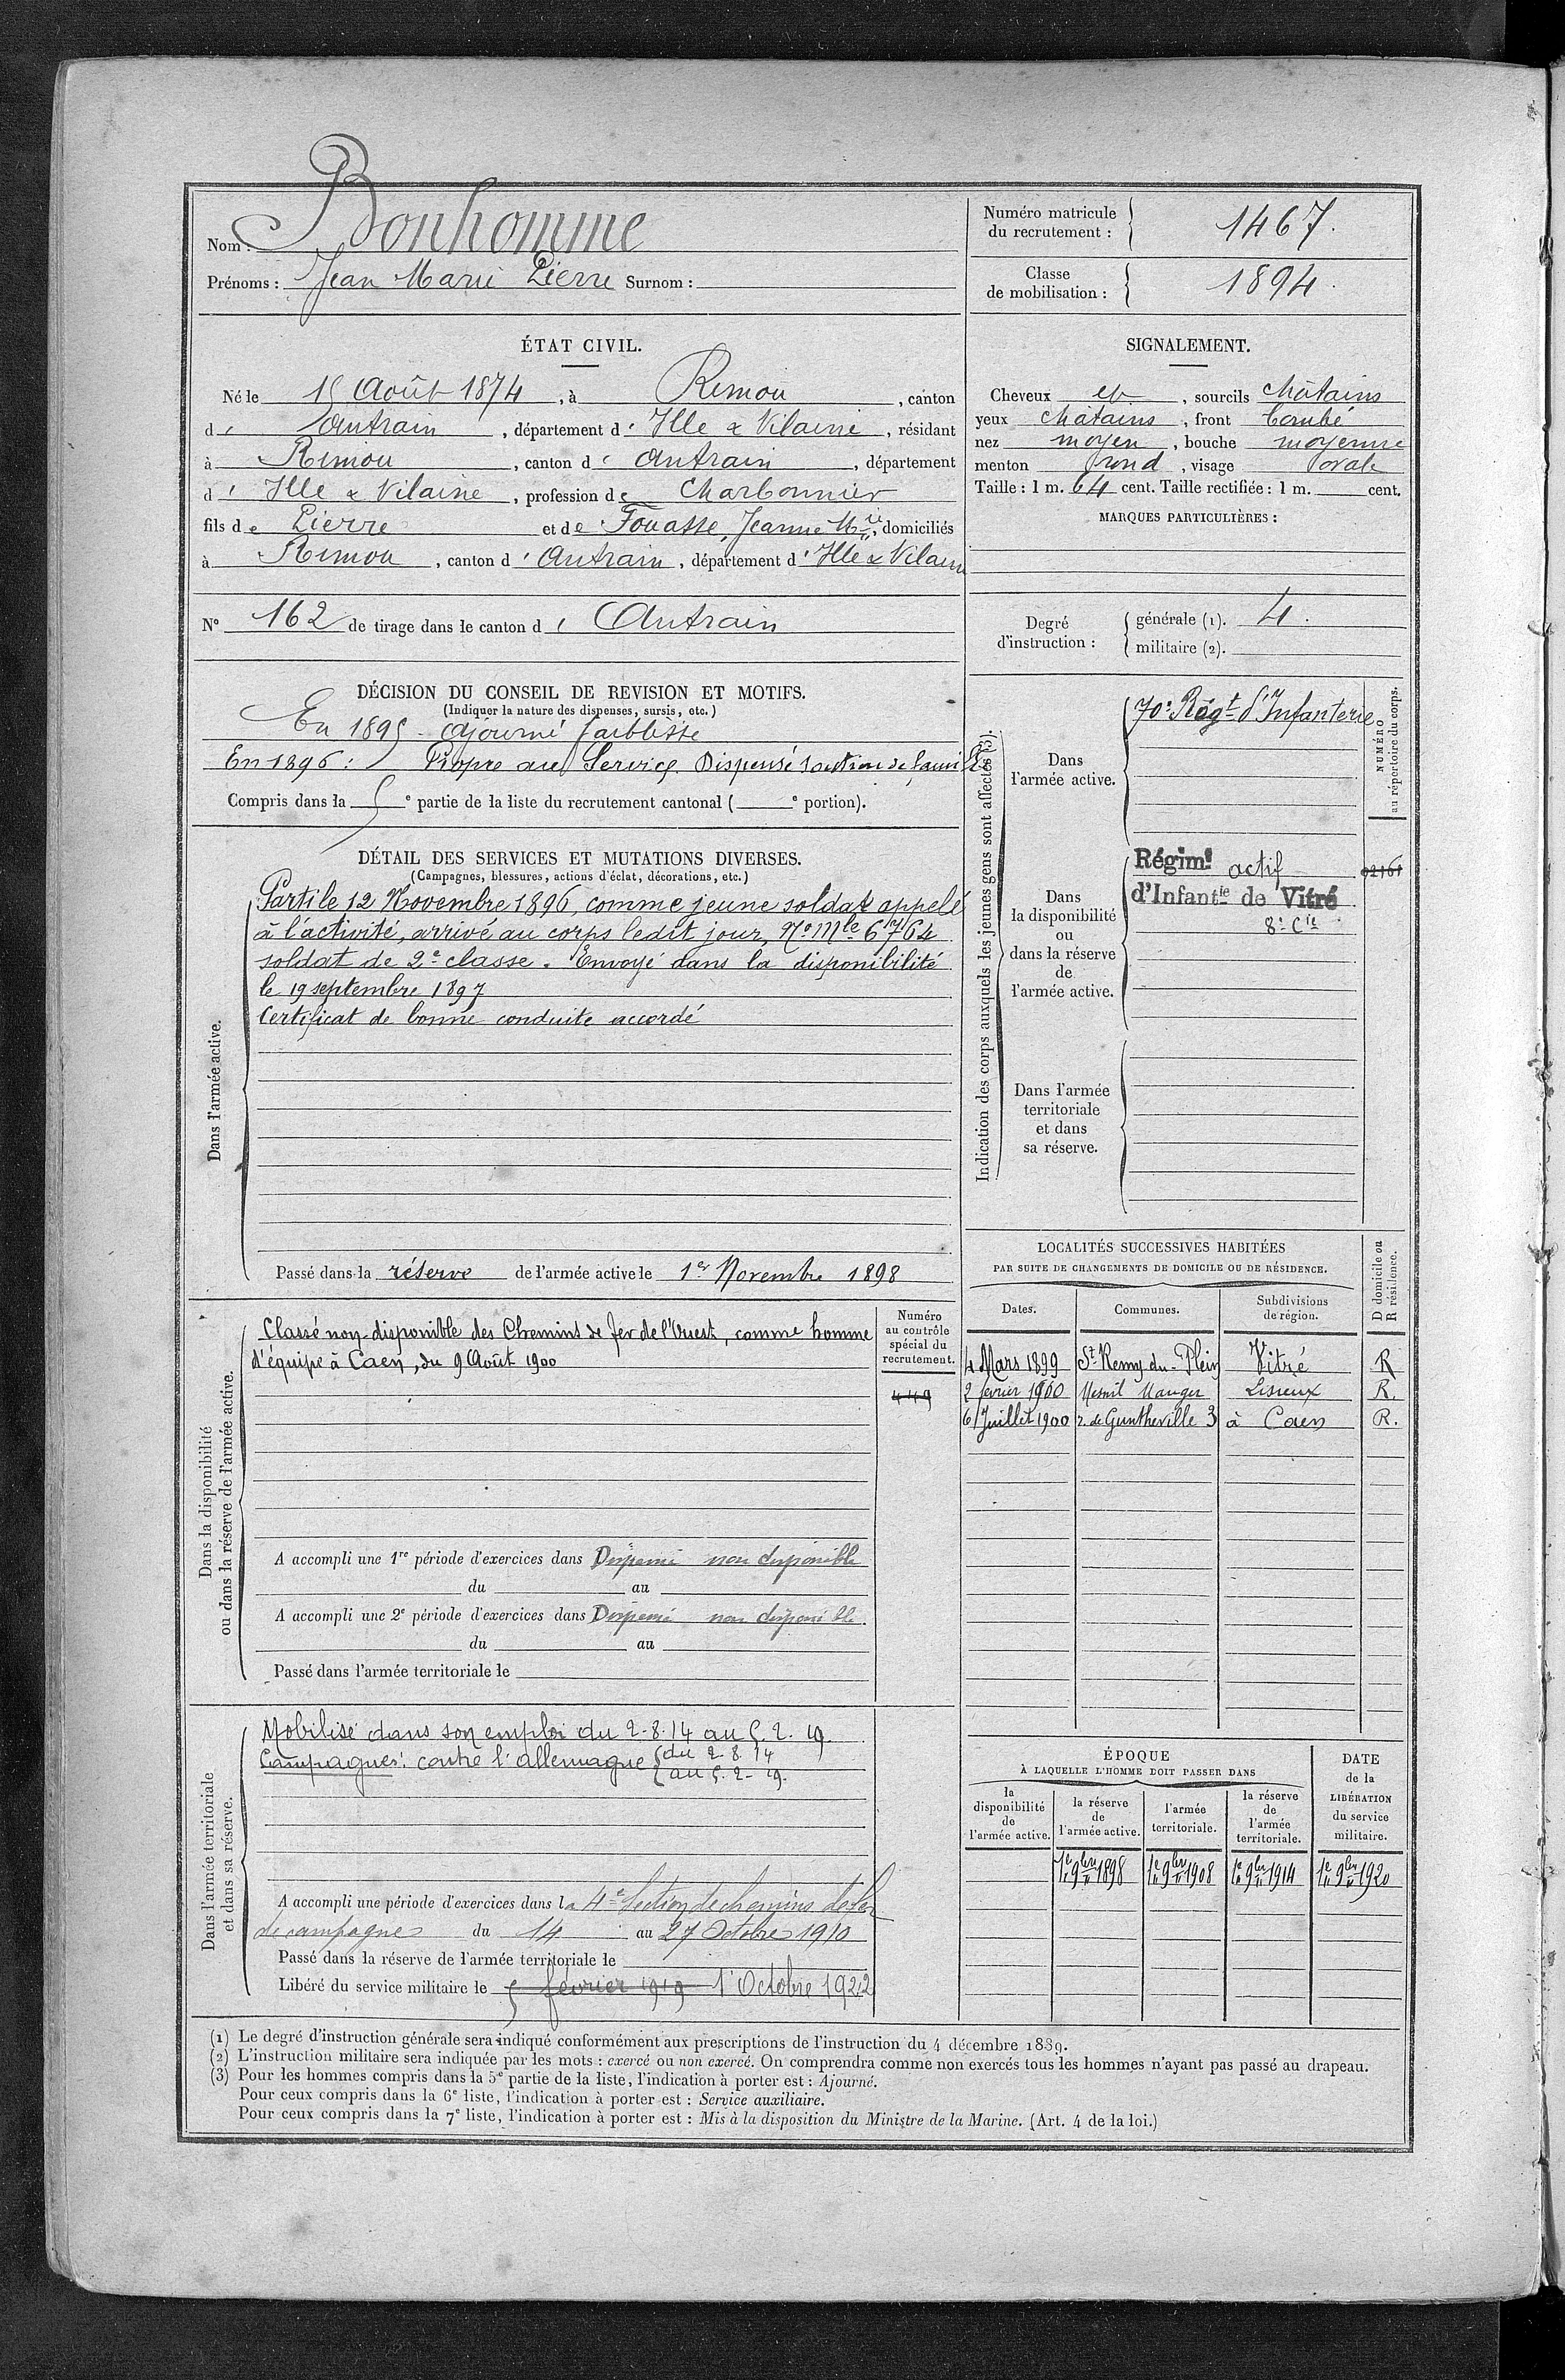 Nom : Bonhomme
Prénoms : Jean Marie Pierre Surnom :
Numéro matricule du recrutement : 1467.
Classe de mobilisation : 1894.
ÉTAT CIVIL.
Né le 15 Août 1874, à Rimou, canton
d' Antrain, département d' Ille & Vilaine, résidant
à Rimou, canton d' Antrain, département
d' Ille & Vilaine, profession de Charbonnier
fils de Pierre et de Fouasse, Jeanne Mie, domiciliés
à Rimou, canton d' Antrain, département d' Ille & Vilaine
N° 162 de tirage dans le canton d' Antrain
SIGNALEMENT.
Cheveux et, sourcils châtains
yeux châtains, front bombé
nez moyen, bouche moyenne
menton rond, visage ovale
Taille : 1 m. 64 cent. Taille rectifiée : 1 m. cent.
MARQUES PARTICULIÈRES :
Degré d'instruction : générale (1). 4.
militaire (2).
DÉCISION DU CONSEIL DE REVISION ET MOTIFS.
(Indiquer la nature des dispenses, sursis, etc.)
En 1895 - Ajourné faiblesse
En 1896 : Propre au Service. Dispensé soutien de famille
Compris dans la 5e partie de la liste du recrutement cantonal ( e portion).
DÉTAIL DES SERVICES ET MUTATIONS DIVERSES.
(Campagnes, blessures, actions d'éclat, décorations, etc.)
Dans l'armée active.
Parti le 12 Novembre 1896, comme jeune soldat appelé
à l'activité, arrivé au corps ledit jour, No Mle 6764
soldat de 2e classe. Envoyé dans la disponibilité
le 19 septembre 1897
Certificat de bonne conduite accordé
Passé dans la réserve de l'armée active le 1er Novembre 1898
Indication des corps auxquels les jeunes gens sont affectés (3).
NUMÉRO au répertoire du corps.
Dans l'armée active.
70e Régt d'Infanterie
Dans la disponibilité ou dans la réserve de l'armée active.
Régimt actif
d'Infantie de Vitré
8e Cie
02161
Dans l'armée territoriale et dans sa réserve.
Dans la disponibilité ou dans la réserve de l'armée active.
Classé non-disponible des Chemins de fer de l'Ouest, comme homme
d'équipe à Caen, du 9 Août 1900
Numéro au contrôle spécial du recrutement.
449
A accompli une 1re période d'exercices dans Dispensé non disponible
du au
A accompli une 2e période d'exercices dans Dispensé non disponible
du au
Passé dans l'armée territoriale le
LOCALITÉS SUCCESSIVES HABITÉES
PAR SUITE DE CHANGEMENTS DE DOMICILE OU DE RÉSIDENCE.
Dates. Communes. Subdivisions de région. D domicile ou R résidence.
4 Mars 1899 St Remy-du-Plein Vitré R
2 février 1900 Mesnil Mauger Lisieux R.
6 Juillet 1900 r. de Guntheville 3 à Caen R.
Dans l'armée territoriale et dans sa réserve.
Mobilisé dans son emploi du 2-8-14 au 5.2.19.
Campagnes : contre l'allemagne du 2-8-14
au 5-2-19.
A accompli une période d'exercices dans la 4e Section de chemins de fer
de campagne du 14 au 27 Octobre 1910
Passé dans la réserve de l'armée territoriale le
Libéré du service militaire le 5 février 1919 1er Octobre 1922
ÉPOQUE
À LAQUELLE L'HOMME DOIT PASSER DANS
la disponibilité de l'armée active. la réserve de l'armée active. l'armée territoriale. la réserve de l'armée territoriale. DATE de la LIBÉRATION du service militaire.
1er 9bre 1898 1er 9bre 1908 1er 9bre 1914 1er 9bre 1920
(1) Le degré d'instruction générale sera indiqué conformément aux prescriptions de l'instruction du 4 décembre 1889.
(2) L'instruction militaire sera indiquée par les mots : exercé ou non exercé. On comprendra comme non exercés tous les hommes n'ayant pas passé au drapeau.
(3) Pour les hommes compris dans la 5e partie de la liste, l'indication à porter est : Ajourné.
Pour ceux compris dans la 6e liste, l'indication à porter est : Service auxiliaire.
Pour ceux compris dans la 7e liste, l'indication à porter est : Mis à la disposition du Ministre de la Marine. (Art. 4 de la loi.)